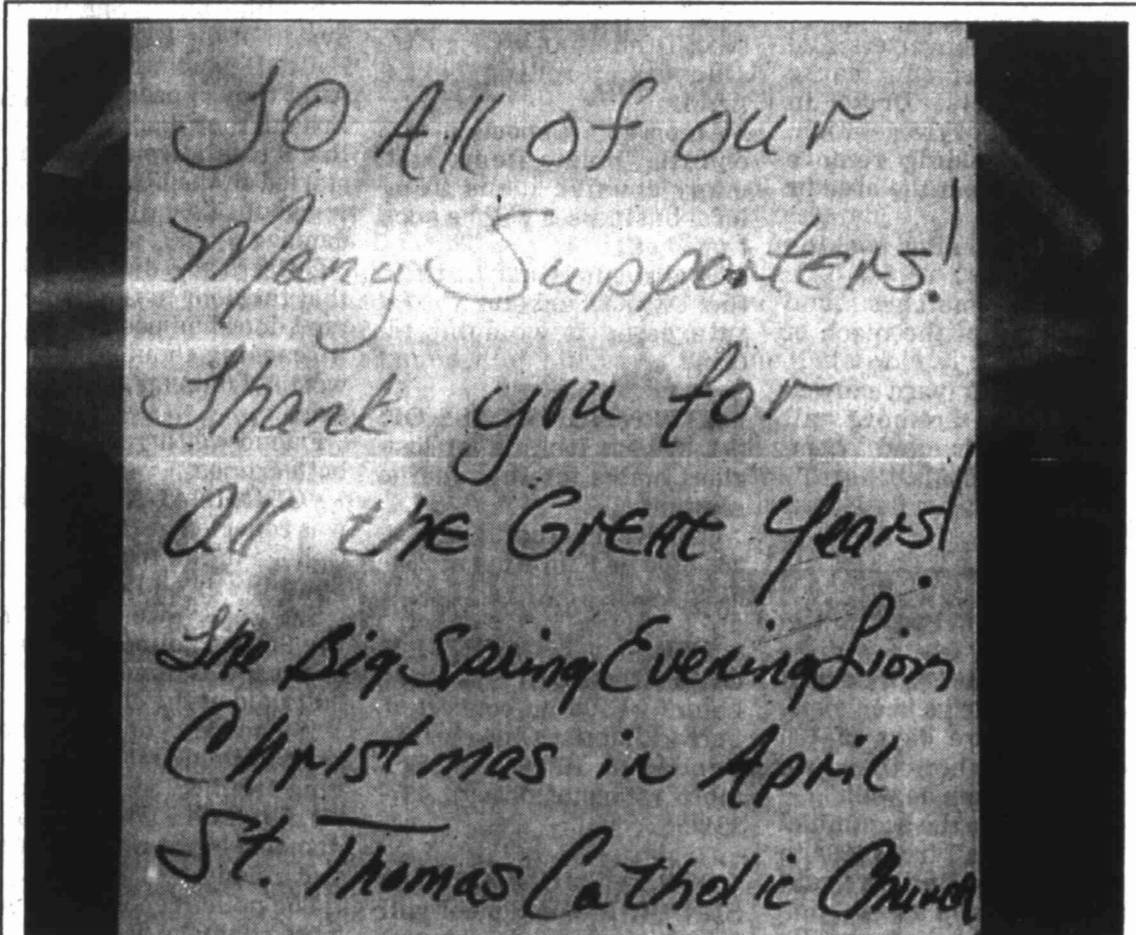 TO All of our
Many Supporters!
Thank you for
All the Great Years!
The Big Spring Evening Lion
Christmas in April
St. Thomas Catholic Church